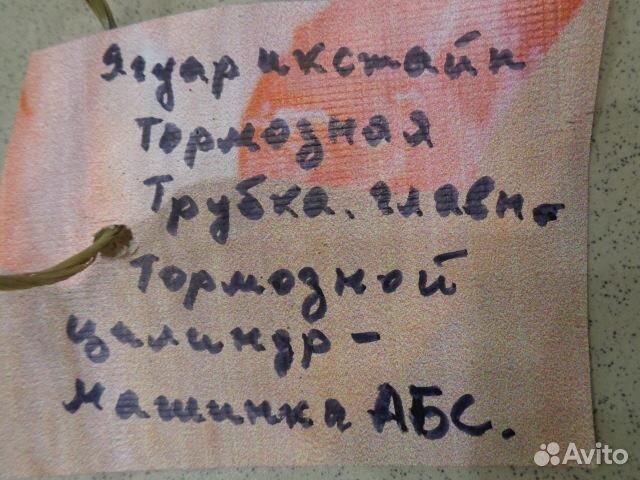 Ягуар икстайп
Тормозная
Трубка. главн.
Тормозной
цилиндр -
машинка АБС.
Avito